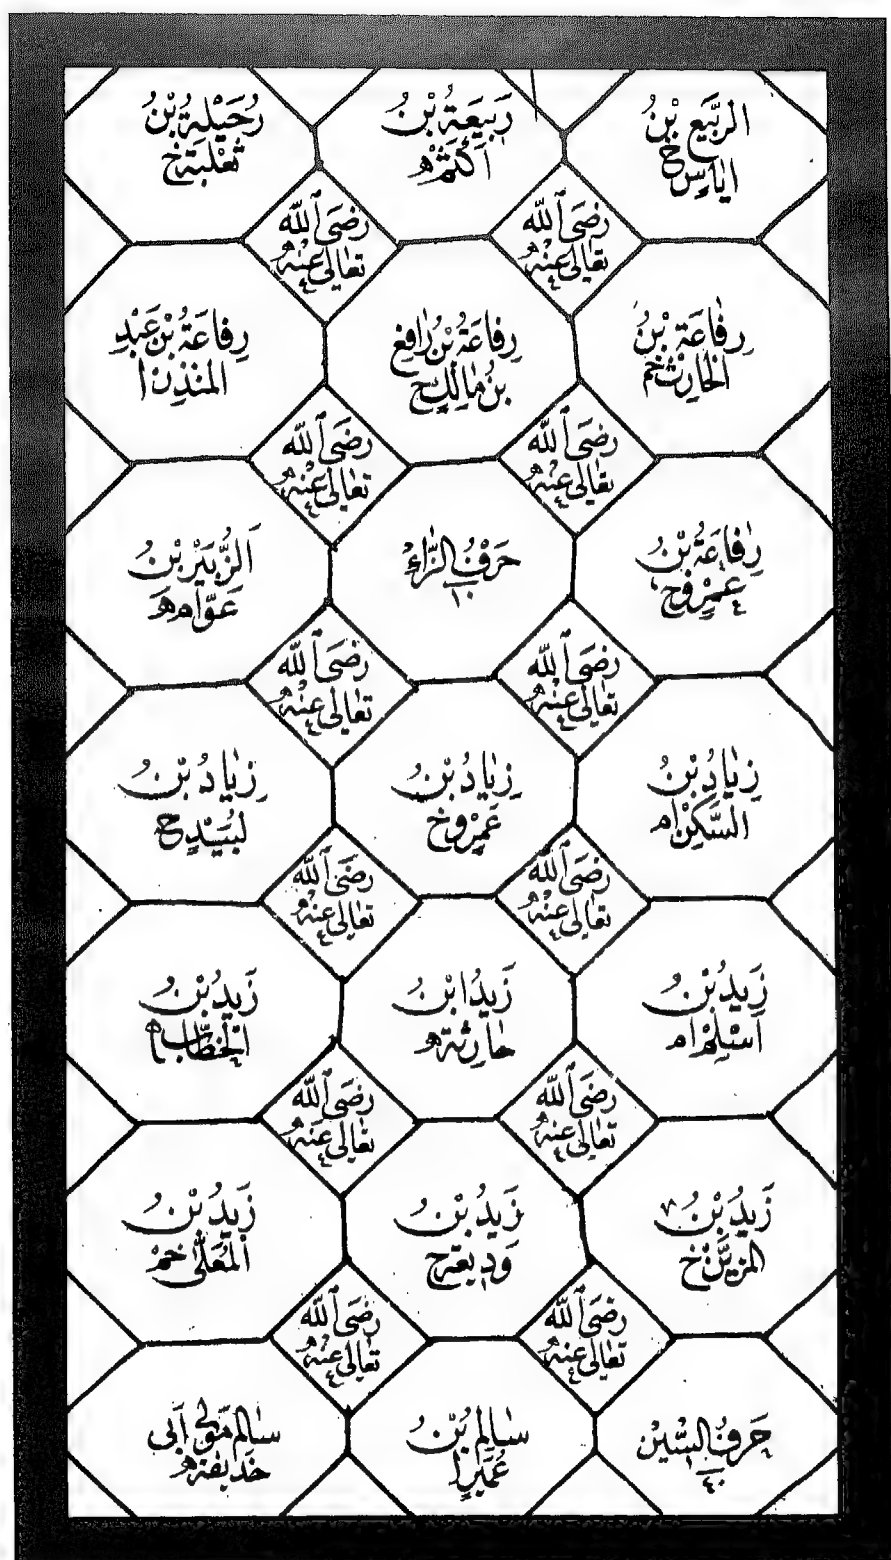 الرَّبِيع بْنُ
اِيَاسٍ خ
رَبِيعَةُ بْنُ
اَكْثَمْ ه
رُحَيْلَةُ بْنُ
ثَعْلَبَةَ خ
رَضِیَ اللّٰه
تعَالٰى عَنْهُ
رَضِیَ اللّٰه
تعَالٰى عَنْهُ
رِفَاعَةُ بْنُ
الْحَارِثِ خم
رِفَاعَةُ بْنُ رَافِعِ
بْنُ مَالِكٍ ح
رِفَاعَةُ بْنُ عَبْدِ
المنْذِرْ ا
رَضِیَ اللّٰه
تعَالٰى عَنْهُ
رَضِیَ اللّٰه
تعَالٰى عَنْهُ
رِفَاعَةُ بْنُ
عَمْرٍو خ
حَرْفُ الزَّاءِ
١٠
اَلزُّبَيْرْ بْنُ
عَوَّامْ ه
رَضِیَ اللّٰه
تعَالٰى عَنْهُ
رَضِیَ اللّٰه
تعَالٰى عَنْهُ
زِيَادُ بْنُ
السَّكَنْ ام
زِيَادُ بْنُ
عَمْرٍو خ
زِيَادُ بْنُ
لَبِيدٍ ح
رَضِیَ اللّٰه
تعَالٰى عَنْهُ
رَضِیَ اللّٰه
تعَالٰى عَنْهُ
زَيدُ بْنُ
اَسْلَمْ ام
زَيدُ ابْنُ
حَارِثَةَ ه
زَيدُ بْنُ
الْخَطَّاب ه
رَضِیَ اللّٰه
تعَالٰى عَنْهُ
رَضِیَ اللّٰه
تعَالٰى عَنْهُ
زَيدُ بْنُ
المزَيَّنْ خ
زَيدُ بْنُ
وَدِيعَة ح
زَيدُ بْنُ
اَلْمُعَلّٰى خم
رَضِیَ اللّٰه
تعَالٰى عَنْهُ
رَضِیَ اللّٰه
تعَالٰى عَنْهُ
حَرفُ السِّيْن
٤٠
سَالِم بْنُ
عُمَيْرٍ ا
سَالِم مَوْلٰى اَبِى
حُذَيفَة ه